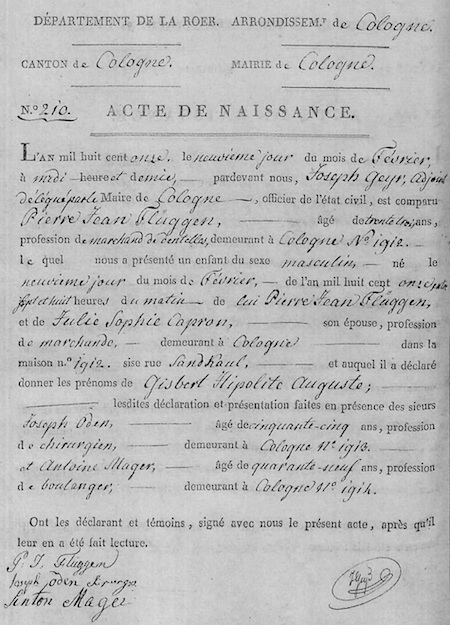 DÉPARTEMENT DE LA ROER. ARRONDISSEM.ᵗ de Cologne.
CANTON de Cologne. MAIRIE de Cologne.
N.º 210. ACTE DE NAISSANCE.
L'AN mil huit cent onze, le neuvième jour du mois de Février,
à midi heure et demie, pardevant nous, Joseph Geyr, Adjoint
délégué par le Maire de Cologne, officier de l'état civil, est comparu
Pierre Jean Fluggen, âgé de trente trois ans,
profession de marchand de dentelles, demeurant à Cologne Nº 1912
le quel nous a présenté un enfant du sexe masculin, né le
neuvième jour du mois de Février, de l'an mil huit cent onze
sept et huit heures du matin de lui Pierre Jean Flüggen,
et de Julie Sophie Capron, son épouse, profession
de marchande, demeurant à Cologne dans la
maison n.º 1912 sise rue Sandkaul, et auquel il a déclaré
donner les prénoms de Gisbert Hipolite Auguste;
lesdites déclaration et présentation faites en présence des sieurs
Joseph Öden, âgé de cinquante-cinq ans, profession
de chirurgien, demeurant à Cologne Nº 1913.
et Antoine Mager, âgé de quarante-neuf ans, profession
de boulanger, demeurant à Cologne Nº 1914.
Ont les déclarant et témoins, signé avec nous le présent acte, après qu'il
leur en a été fait lecture.
P. J. Fluggen
Joseph Öden
Anton Mager